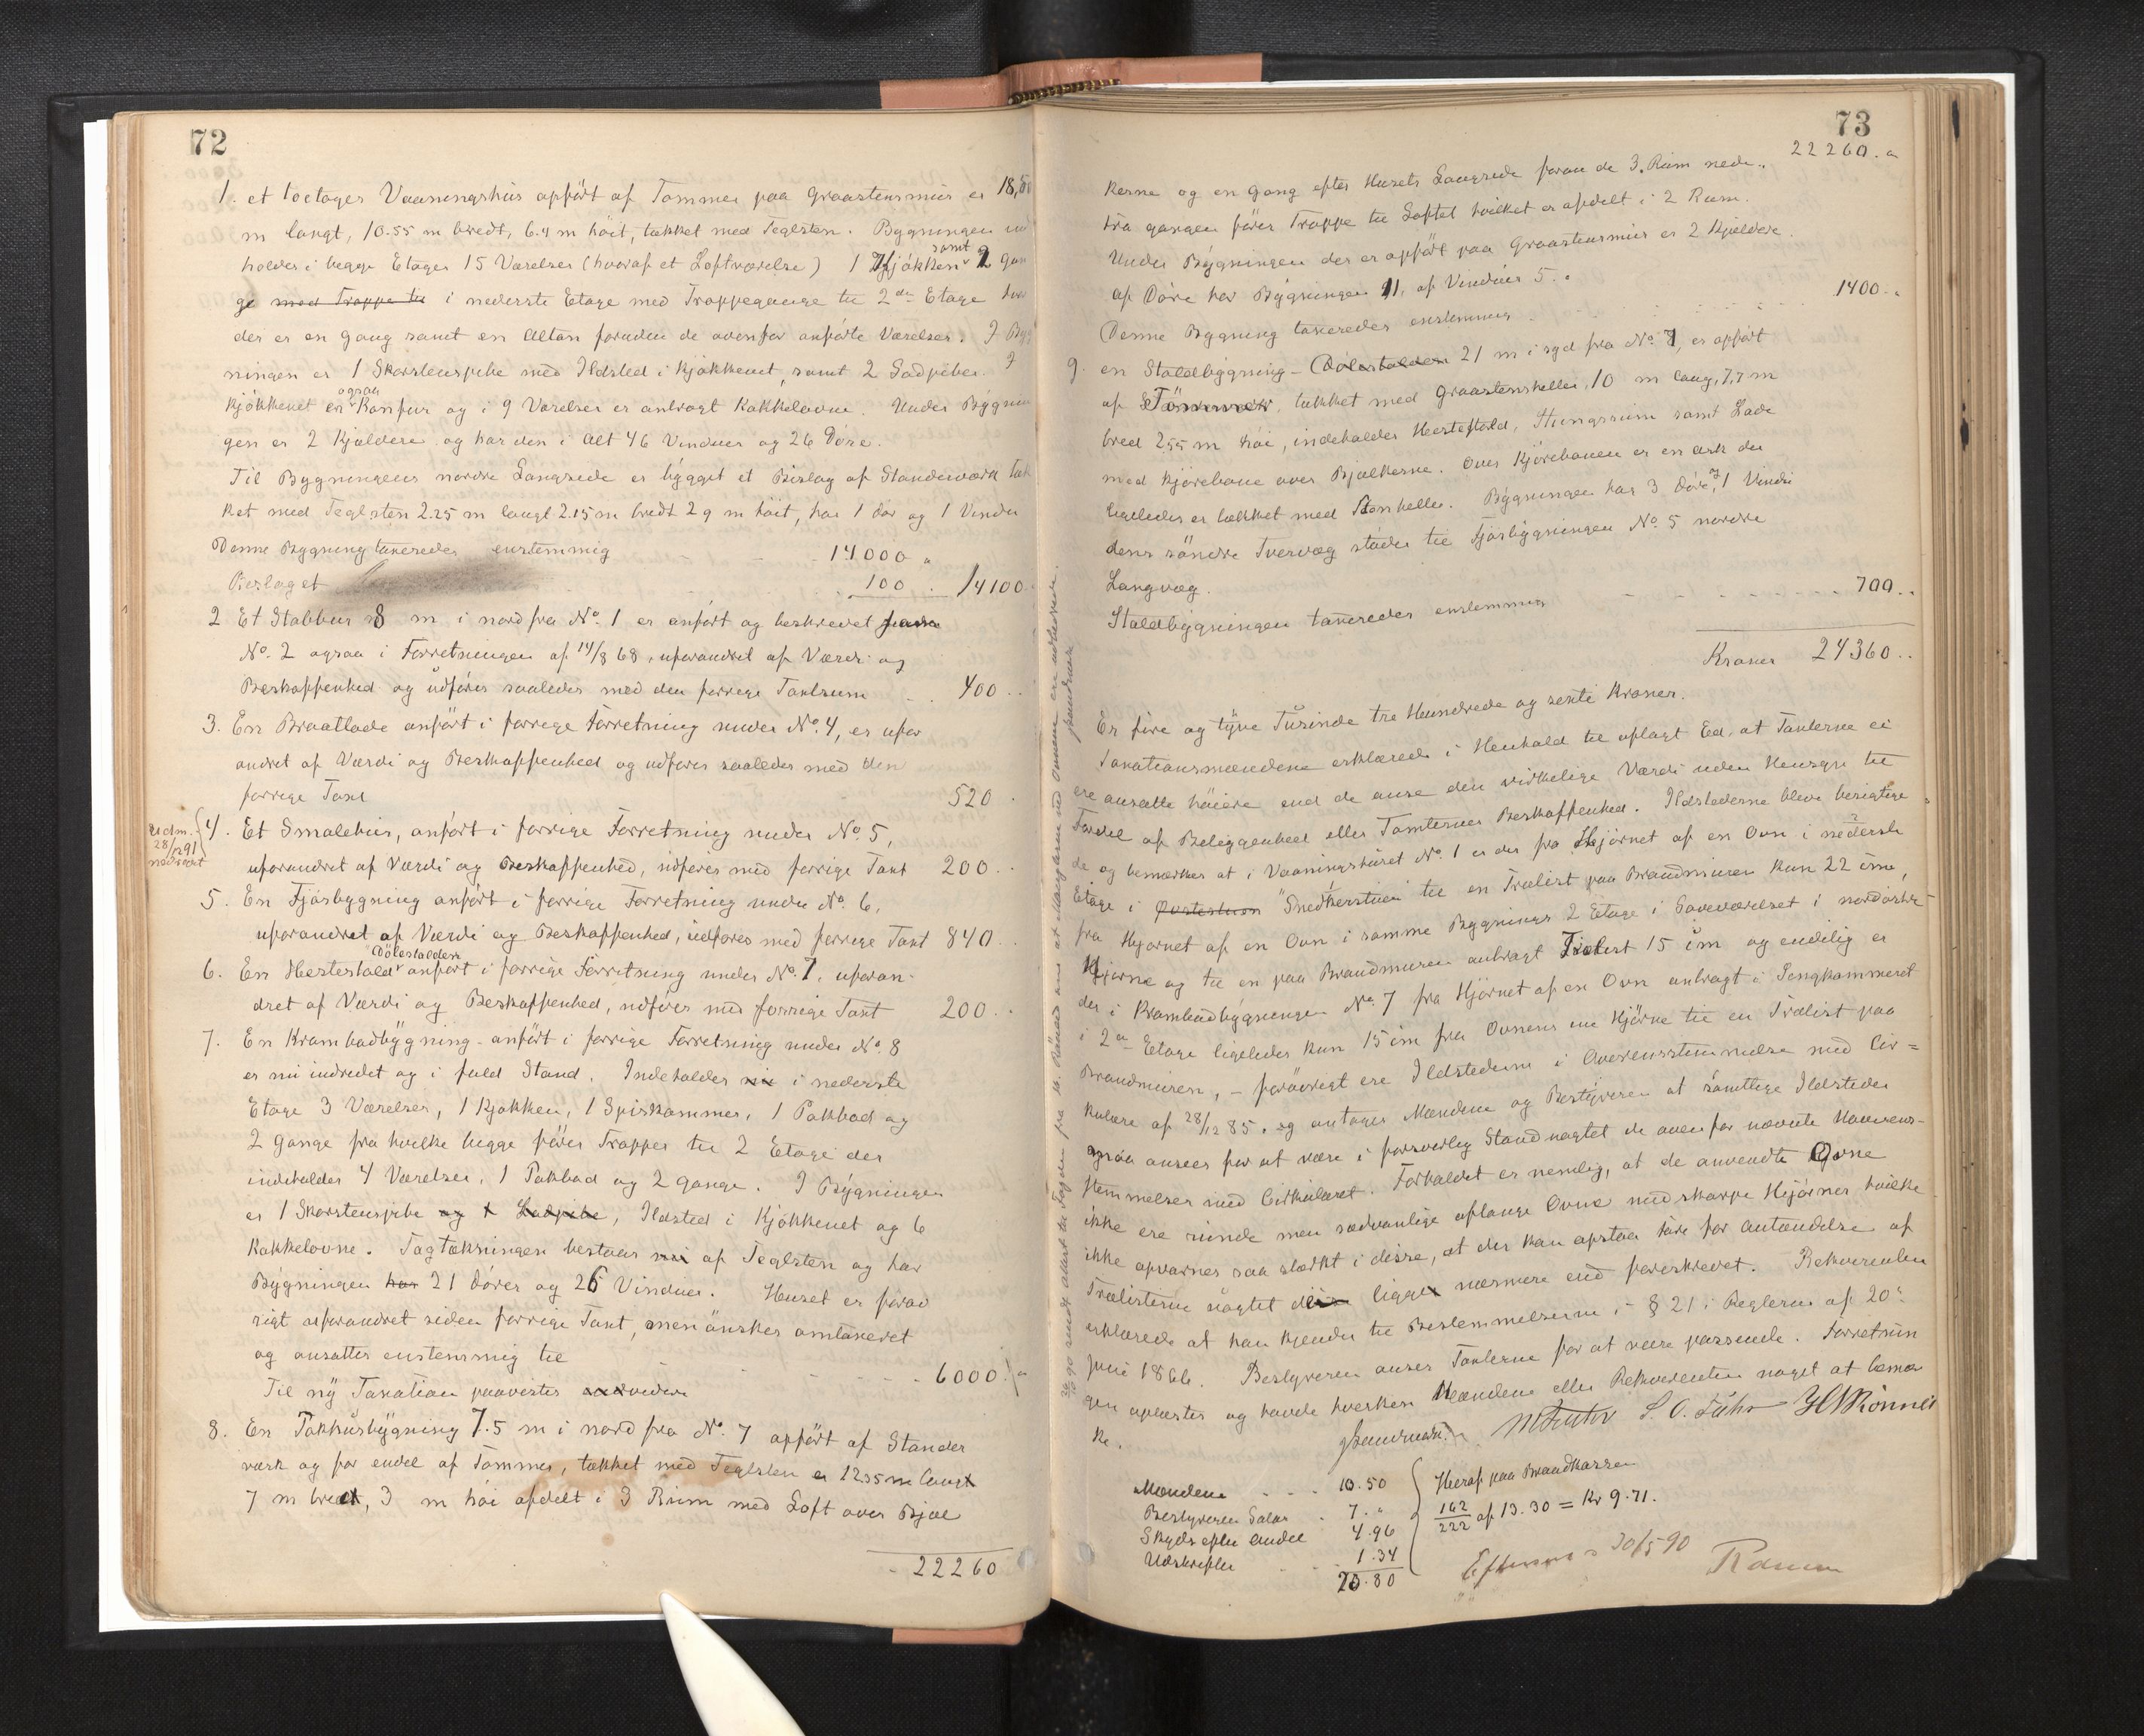 72
1. et toetages Vaaningshus opført af Tømmer paa Graastensmur er 18,
m langt, 10.55 m bredt, 6.4 m høit, tækket med Teglsten. Bygningen in
holder i begge Etager 15 Værelser (hvoraf et Loftværelse) 1 Kjøkken samt 2 gan
ge med Trappe til i nederste Etage med Trappegange til 2den Etage hvor
der er en Gang samt en Altan foruden de ovenfor anførte Værelser. I Byg
ningen er 1 Skorstenspibe med Ildsted i Kjøkkenet, samt 2 Ladpiber. I
Kjøkkenet er ogsaa Komfur og i 9 Værelser er anbragt Kakkelovne. Under Bygnin
gen er 2 Kjældere og har den i alt 46 Vinduer og 26 Døre.
Til Bygningens nordre Langside er bygget et Bislag af Standerværk tæk
ket med Teglsten 2.25 m langt 2.15 m bredt 2 9 m høit, har 1 Dør og 1 Vindu
Denne Bygning taxeredes enstemmig 14000
Bislaget 100 14100
2 Et Stabbur 8 m i nord fra No. 1 er anført og beskrevet
No. 2 ogsaa i Forretningen af 14/8 68, uforandret af Værdi og
Beskaffenhed og udføres saaledes med den forrige Taxtsum 400
3. En Braatlade anført i forrige Forretning under No. 4, er ufor
andret af Værdi og Beskaffenhed og udføres saaledes med den
forrige Taxt 520
Udm.
28/12 91
nedrevet
4. Et Smalehus, anført i forrige Forretning under No. 5,
uforandret af Værdi og Beskaffenhed, udføres med forrige Taxt 200
5. En Fjøsbygning anført i forrige Forretning under No. 6,
uforandret af Værdi og Beskaffenhed, udføres med forrige Taxt 840
6. En Hestestald "Dølestalden anført i forrige Forretning under No. 7. uforan-
dret af Værdi og Beskaffenhed, udføres med forrige Taxt 200
7. En Krambodbygning anført i forrige Forretning under No. 8
er nu indredet og i fuld Stand. Indeholder nu i nederste
Etage 3 Værelser, 1 Kjøkken, 1 Spiskammer, 1 Pakbod og
2 Gange fra hvilke begge fører Trapper til 2 Etage der
indeholder 4 Værelser, 1 Pakbod og 2 gange. I Bygningen
er 1 Skorstenspibe og 1 Ladpibe, Ildsted i Kjøkkenet og 6
Kakkelovne. Tagtækningen bestaar nu af Teglsten og har
Bygningen har 21 Døres og 26 Vinduer. Huset er forøv
rigt uforandret siden forrige Taxt, men ønskes omtaxeret
og ansattes enstemmig til 6000
Til ny Taxation paavistes
8. En Pakhusbygning 7.5 m i nord fra No. 7 opført af Stander
værk og for endel af Tømmer, tækket med Teglsten er 12.35 m langt
7 m bredt, 3 m høi afdelt i 3 Rum med Loft over Bjæl
22260
73
22260.
kerne og en Gang efter Husets Langside foran de 3. Rum nede.
Fra gangen fører Trappe til Loftet hvilket er afdelt i 2 Rum.
Under Bygningen der er opført paa Graastensmur er 2 Kjældere.
af Døre har Bygningen 11, af Vinduer 5.
Denne Bygning taxeredes enstemmig 1400
9. en Staldbygning - Dølestalden 21 m i syd fra No. 7, er opført
af Tømmer, tækket med Graastensheller, 10 m lang, 7,7 m
bred 2.55 m høi, indeholder Hestestald, Hungsrum samt Lade
med Kjørebane over Bjælkerne. Over Kjørebanen er en Ark der
ligeledes er tækket med Stenheller. Bygningen har 3 Døre, 1 Vindu
dens søndre Tvervæg støder til Fjøsbygningen No. 5 nordre
Langvæg.
Staldbygningen taxeredes enstemmig 700
Kroner 24360
Er fire og tyve Tusinde tre Hundrede og sexti Kroner.
Taxationsmændene erklærede i Henhold til aflagt Ed, at Taxterne ei
ere ansatte høiere end de anse den virkelige Værdi uden Hensyn til
Fordel af Beliggenhed eller Tomternes Beskaffenhed. Ildstederne bleve besigtige
de og bemærkes at i Vaaningshuset No. 1 er der fra Hjørnet af en Ovn i nederste
Etage i "Snedkerstuen" til en Trælist paa Brandmuren kun 22 cm,
fra Hjørnet af en Ovn i samme Bygnings 2 Etage i Soveværelset i nordøstre
Hjørne og til en paa Brandmuren anbragt Trælist 15 cm og endelig er
der i Krambodbygningen No. 7 fra Hjørnet af en Ovn anbragt i Sengkammeret
i 2en Etage ligeledes kun 15 cm fra Ovnens ene Hjørne til en Trælist paa
Brandmuren, - forøvrigt ere Ildstederne i Overensstemmelse med Cir=
kulære af 28/12 85. og antager Mændene og Bestyreren at samtlige Ildsteder
ogsaa ansees for at være i forsvarlig Stand uagtet de ovenfor nævnte Uoverens-
stemmelser med Cirkulæret. Forholdet er nemlig, at de anvendte Ovne
ikke ere runde men sædvanlige aflange Ovne med skarpe Hjørner hvilke
ikke opvarmes saa stærkt i disse, at der kan opstaa Fare for Antændelse af
Trælisterne uagtet disse ligger nærmere end foreskrevet. Rekvirenten
erklærede at han kjender til Bestemmelserne i § 21 i Reglerne af 20de
Juni 1866. Bestyreren anser Taxterne for at være passende. Forretnin
gen oplæstes og havde hverken Mændene eller Rekvirenten noget at bemær
ke.
Mændene 10.50
Bestyreren Salær 7.
Skyds efter Andel 4.96
Udskrifter 1.34
Heraf paa Brandkassen
162/222 af 13.30 = Kr 9.71.
30/5 90